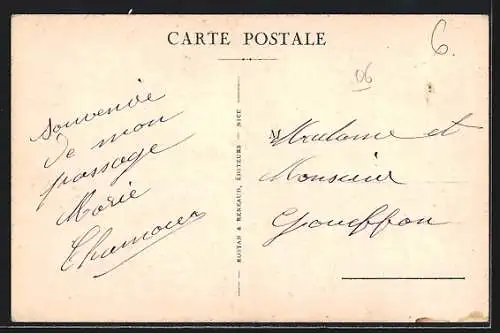 CARTE POSTALE
6.
06
Souvenir
de mon
passage
Marie
ROSTAN & MUNIER, ÉDITEURS — NICE
Madame et
Monsieur
Gouffon